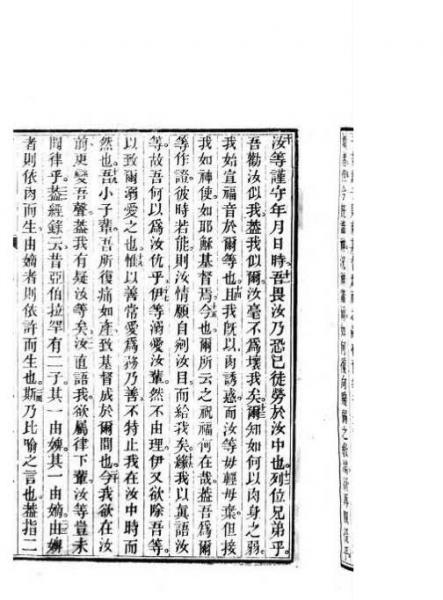 汝等謹守年月日時吾畏汝乃恐已徒勞於汝中也列位兄弟乎
吾勸汝似我葢我似爾汝毫不爲壞我矣爾知如何以肉身之弱
我始宣福音於爾等也且我旣以肉誘惑而汝等毋輕毋棄但接
我如神使如耶穌基督焉今也爾所云之祝福何在哉葢吾爲爾
等作證彼時若能則汝情願自剜汝目而給我矣緣我以眞語汝
等故吾何以爲汝仇乎伊等溺愛汝輩然不由理伊又欲除吾等
以致爾溺愛之也惟以善常愛爲務乃善不特止我在汝中時而
然也吾小子輩吾所復痛如產致基督成於爾間也今我欲在汝
前更變吾聲葢我有疑汝等矣汝直語我欲屬律下輩汝等豈未
聞律乎葢經錄云昔亞伯拉罕有二子其一由婢其一由嫡由婢
者則依肉而生由嫡者則依許而生也斯乃比喻之言也葢指二